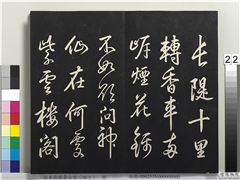 長隄十里
轉香車兩
岸煙花錦
不如欲問神
仙在何處
紫雲樓閣
22